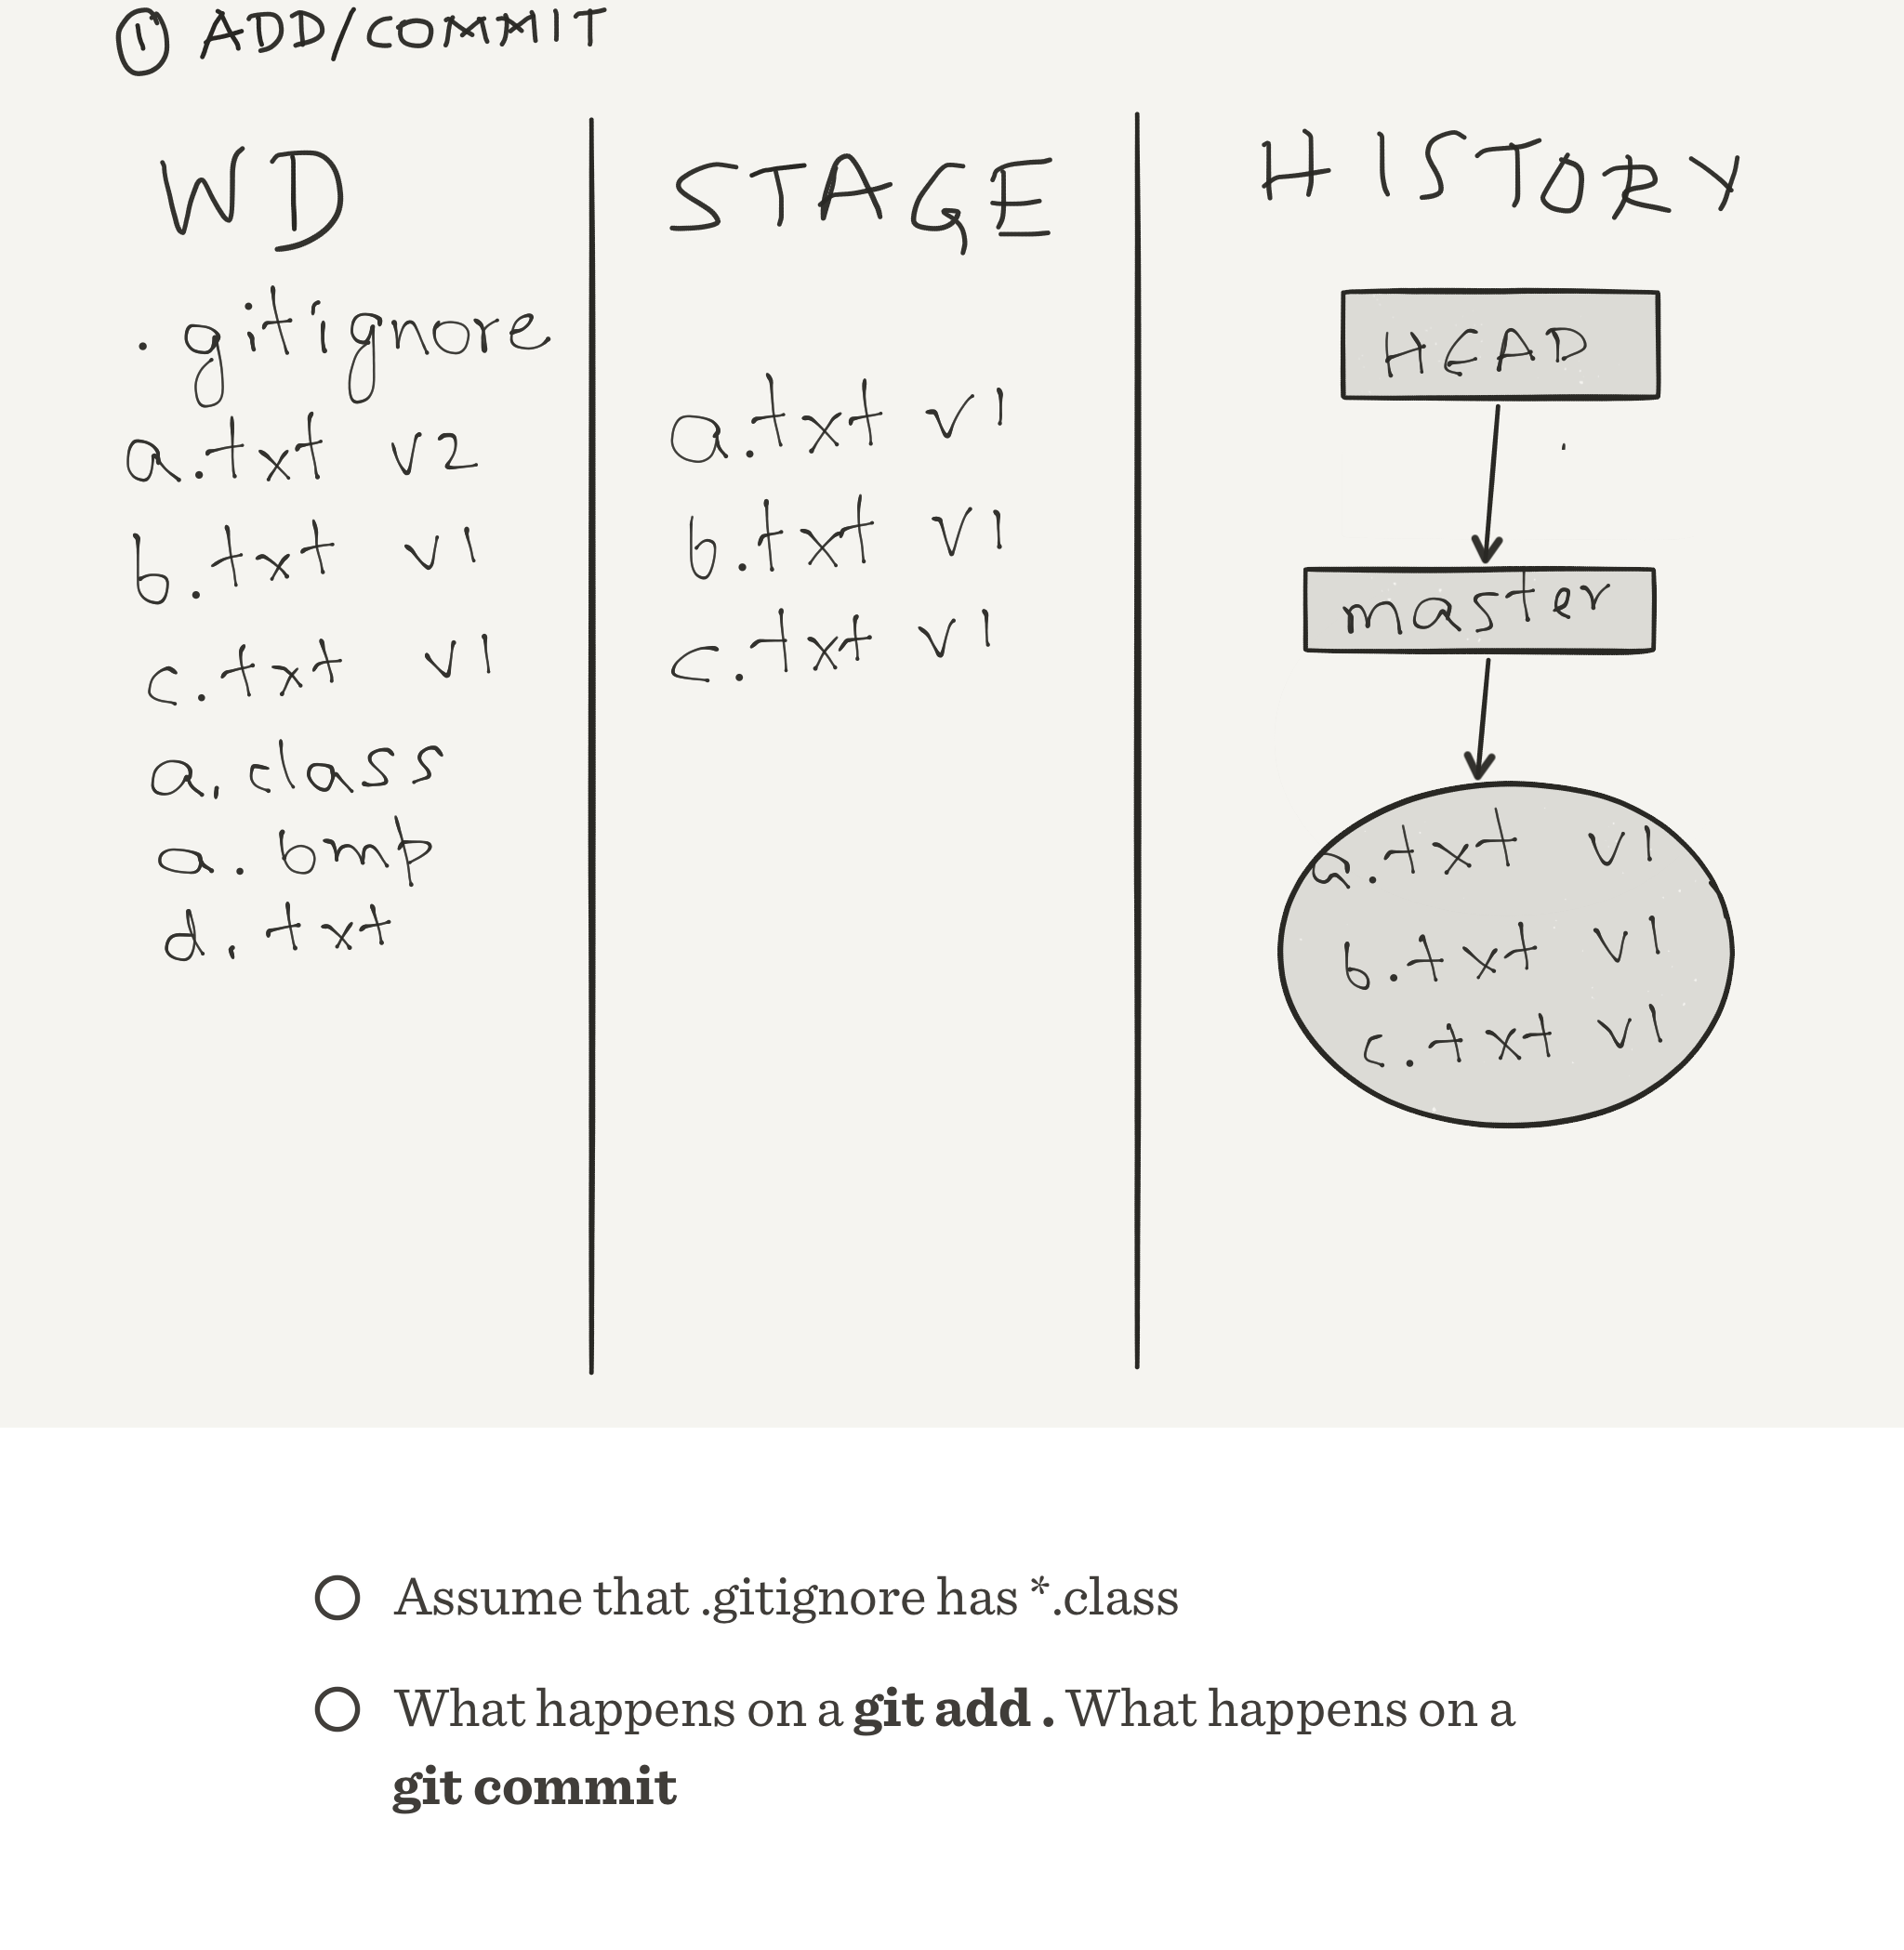 ① ADD/COMMIT
WD
.gitignore
a.txt v2
b.txt v1
c.txt v1
a.class
a.bmp
d.txt
STAGE
a.txt v1
b.txt v1
c.txt v1
HISTORY
HEAD
master
a.txt v1
b.txt v1
c.txt v1
Assume that .gitignore has *.class
What happens on a git add . What happens on a
git commit